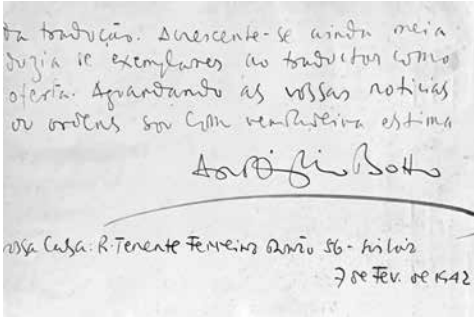 da tradução. Acrescente-se ainda meia
duzia de exemplares ao traductor como
oferta. Aguardando as vossas noticias
ou ordens sou com verdadeira estima
António Botto
vossa Casa: R. Tenente Ferreira Durão 56 - Lisboa
7 de Fev. de 1942